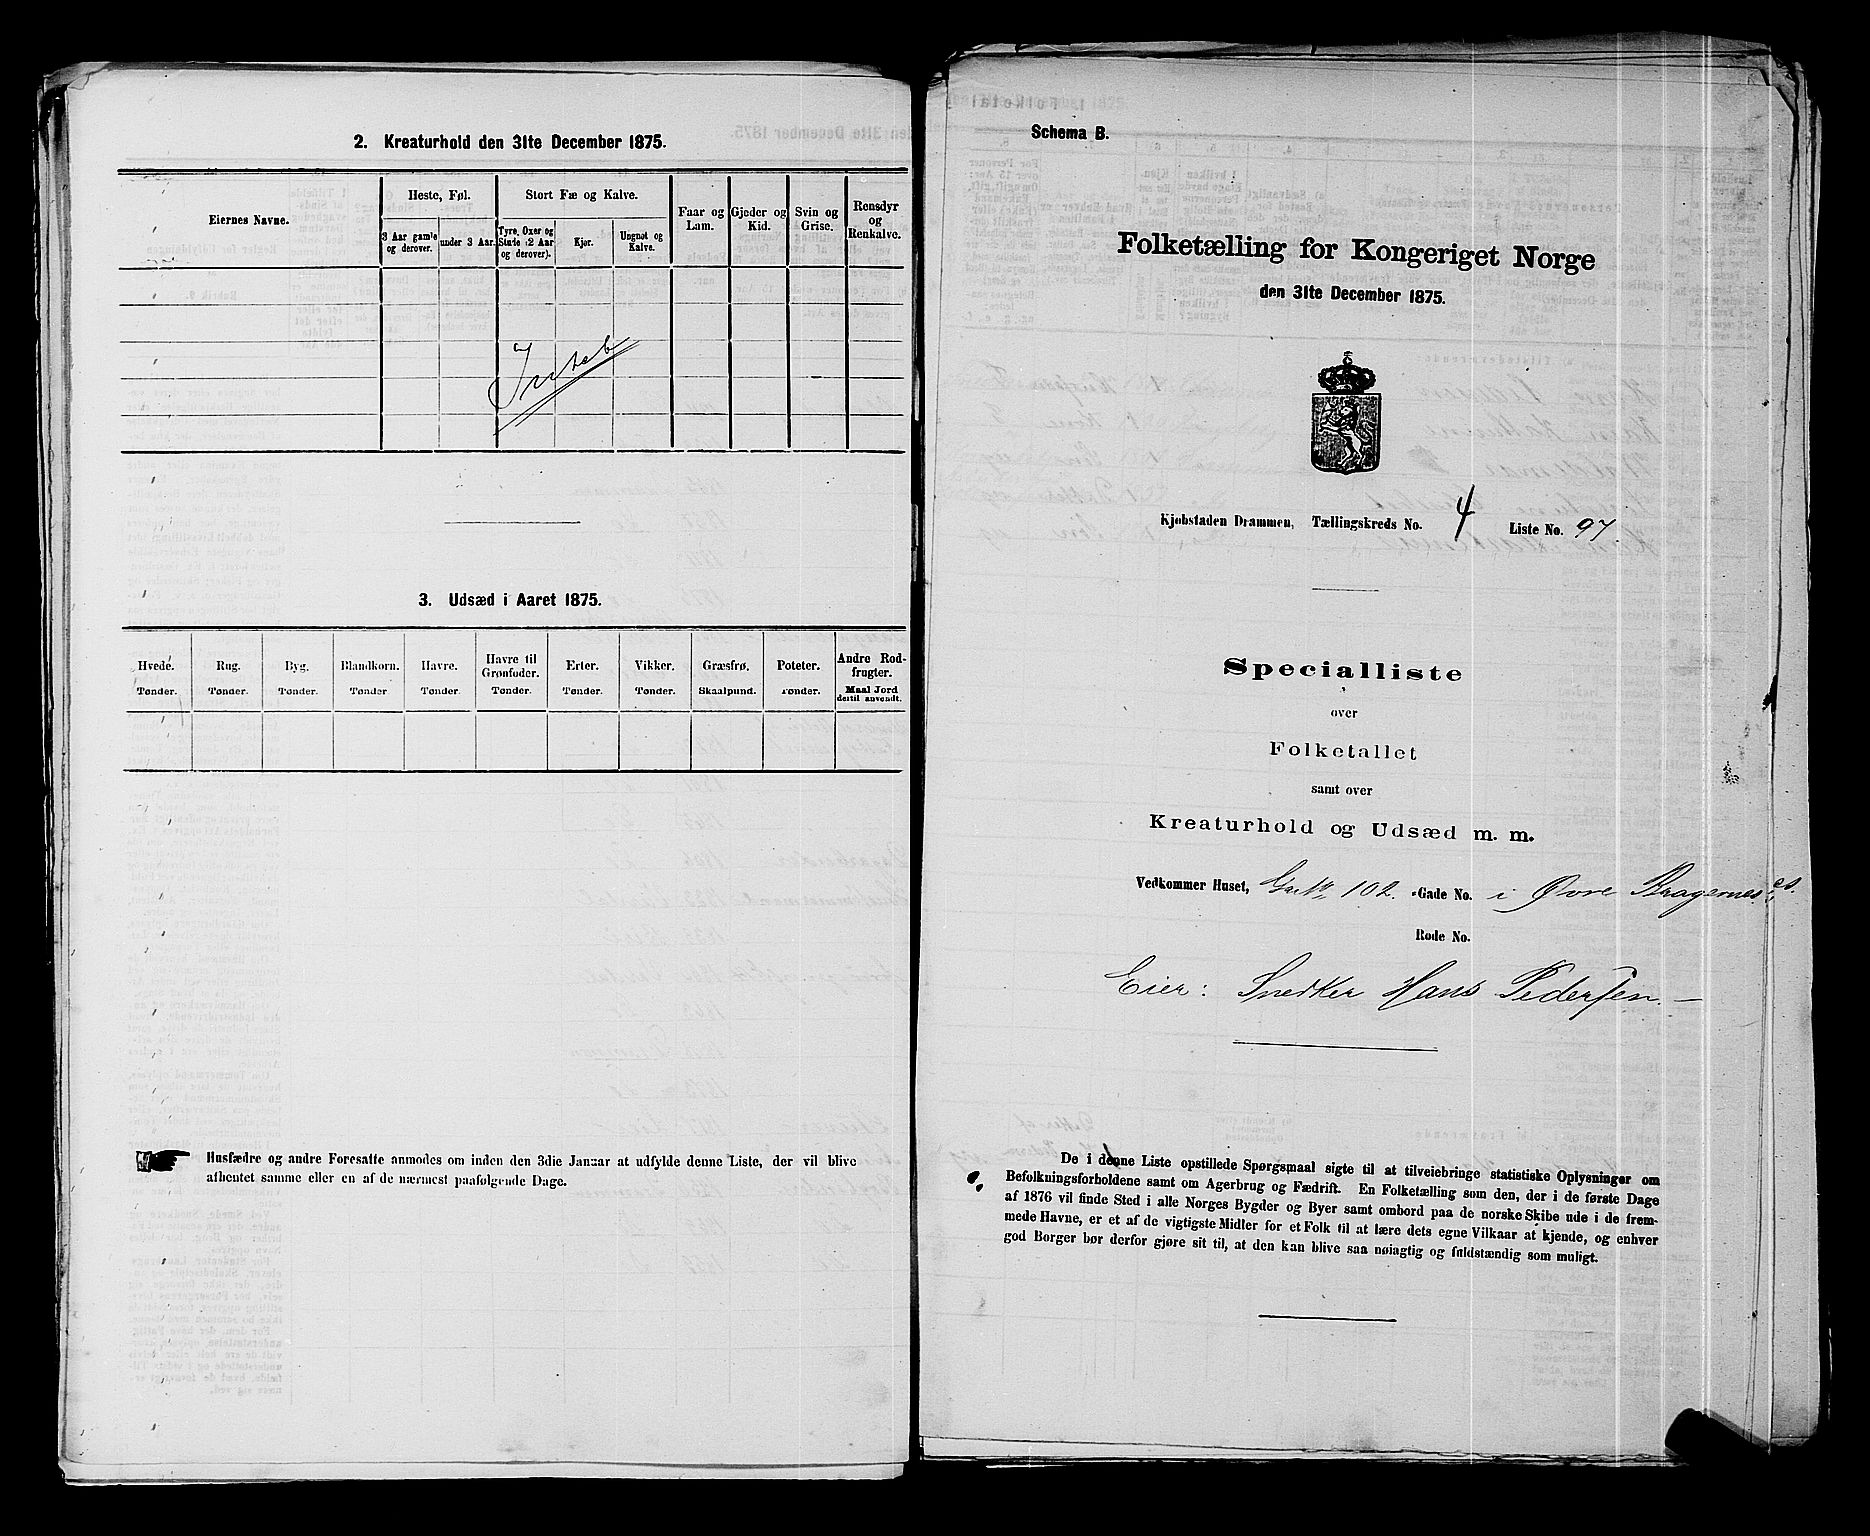 2. Kreaturhold den 31te December 1875.
Eiernes Navne.
Heste, Føl.
Stort Fæ og Kalve.
Faar og Lam.
Gjeder og Kid.
Svin og Grise.
Rensdyr og Renkalve.
3 Aar gamle og derover.
under 3 Aar.
Tyre, Oxer og Stude (2 Aar og derover).
Kjør.
Ungnøt og Kalve.
3. Udsæd i Aaret 1875.
Hvede. Rug. Byg. Blandkorn. Havre. Havre til Grønfoder. Erter. Vikker. Græsfrø. Poteter. Andre Rodfrugter.
Tønder. Tønder. Tønder. Tønder. Tønder. Tønder. Tønder. Tønder. Skaalpund. Tønder. Maal Jord dertil anvendt.
Husfædre og andre Foresatte anmodes om inden den 3die Januar at udfylde denne Liste, der vil blive
afhentet samme eller en af de nærmest paafølgende Dage.
Schema B.
Folketælling for Kongeriget Norge
den 31te December 1875.
Kjøbstaden Drammen, Tællingskreds No. 4 Liste No. 97.
Specialliste
over
Folketallet
samt over
Kreaturhold og Udsæd m. m.
Vedkommer Huset, 102. Gade No. i Øvre Bragernes
Rode No.
Eier: Snedker Hans Pedersen.
De i denne Liste opstillede Spørgsmaal sigte til at tilveiebringe statistiske Oplysninger om
Befolkningsforholdene samt om Agerbrug og Fædrift. En Folketælling som den, der i de første Dage
af 1876 vil finde Sted i alle Norges Bygder og Byer samt ombord paa de norske Skibe ude i de frem-
mede Havne, er et af de vigtigste Midler for et Folk til at lære dets egne Vilkaar at kjende, og enhver
god Borger bør derfor gjøre sit til, at den kan blive saa nøiagtig og fuldstændig som muligt.